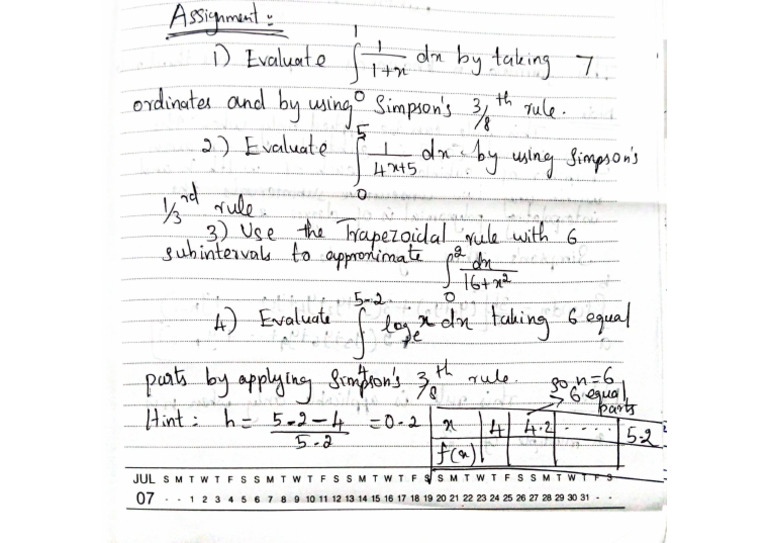 Assignment :
1) Evaluate ∫₀¹ 1/(1+x) dx by taking 7
ordinates and by using Simpson's 3/8 th rule.
2) Evaluate ∫₀⁵ 1/(4x+5) dx by using Simpson's
1/3 rd rule.
3) Use the Trapezoidal rule with 6
subintervals to approximate ∫₀² dx/(16+x²)
4) Evaluate ∫₄^5.2 logₑ x dx taking 6 equal
parts by applying Simpson's 3/8 th rule.
so n=6
→ 6 equal parts
Hint : h = (5.2-4)/5.2 = 0.2
x | 4 | 4.2 | .... | 5.2
f(x)
JUL S M T W T F S S M T W T F S S M T W T F S S M T W T F S S M T W T F S
07 - - 1 2 3 4 5 6 7 8 9 10 11 12 13 14 15 16 17 18 19 20 21 22 23 24 25 26 27 28 29 30 31 - -